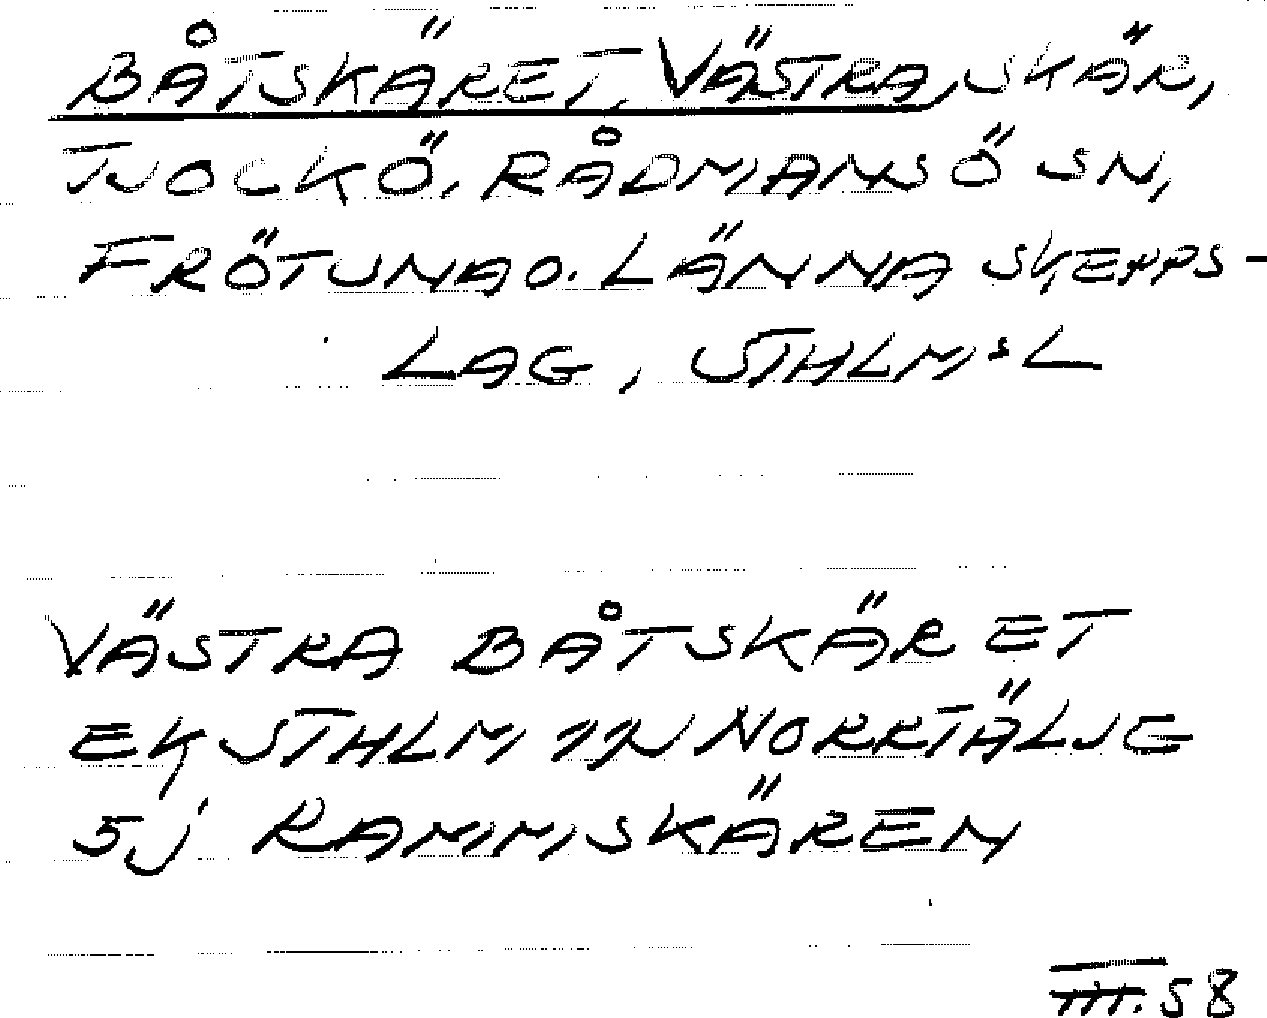 BÅTSKÄRET, VÄSTRA, SKÄR,
TJOCKÖ, RÅDMANSÖ SN,
FRÖTUNA O. LÄNNA SKEPPS-
LAG, STHLM:S L
VÄSTRA BÅTSKÄRET
EK STHLM 11N NORRTÄLJE
5j RAMMSKÄREN
III.58